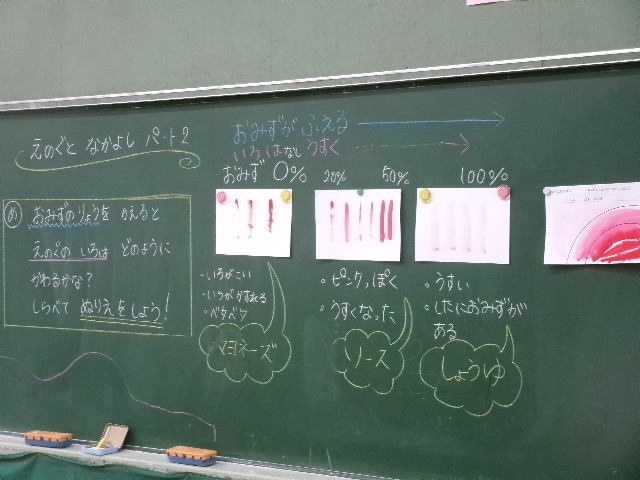 えのぐと なかよし パート2
め おみずのりょうを かえると
えのぐの いろは どのように
かわるかな?
しらべて ぬりえをしよう!
おみずが ふえる
いろは うすく
おみず 0% 20% 50% 100%
・いろがこい
・いろがかすれる
・ベタベタ
マヨネーズ
・ピンクっぽく
・うすくなった
ソース
・うすい
・したにおみずが
ある
しょうゆ